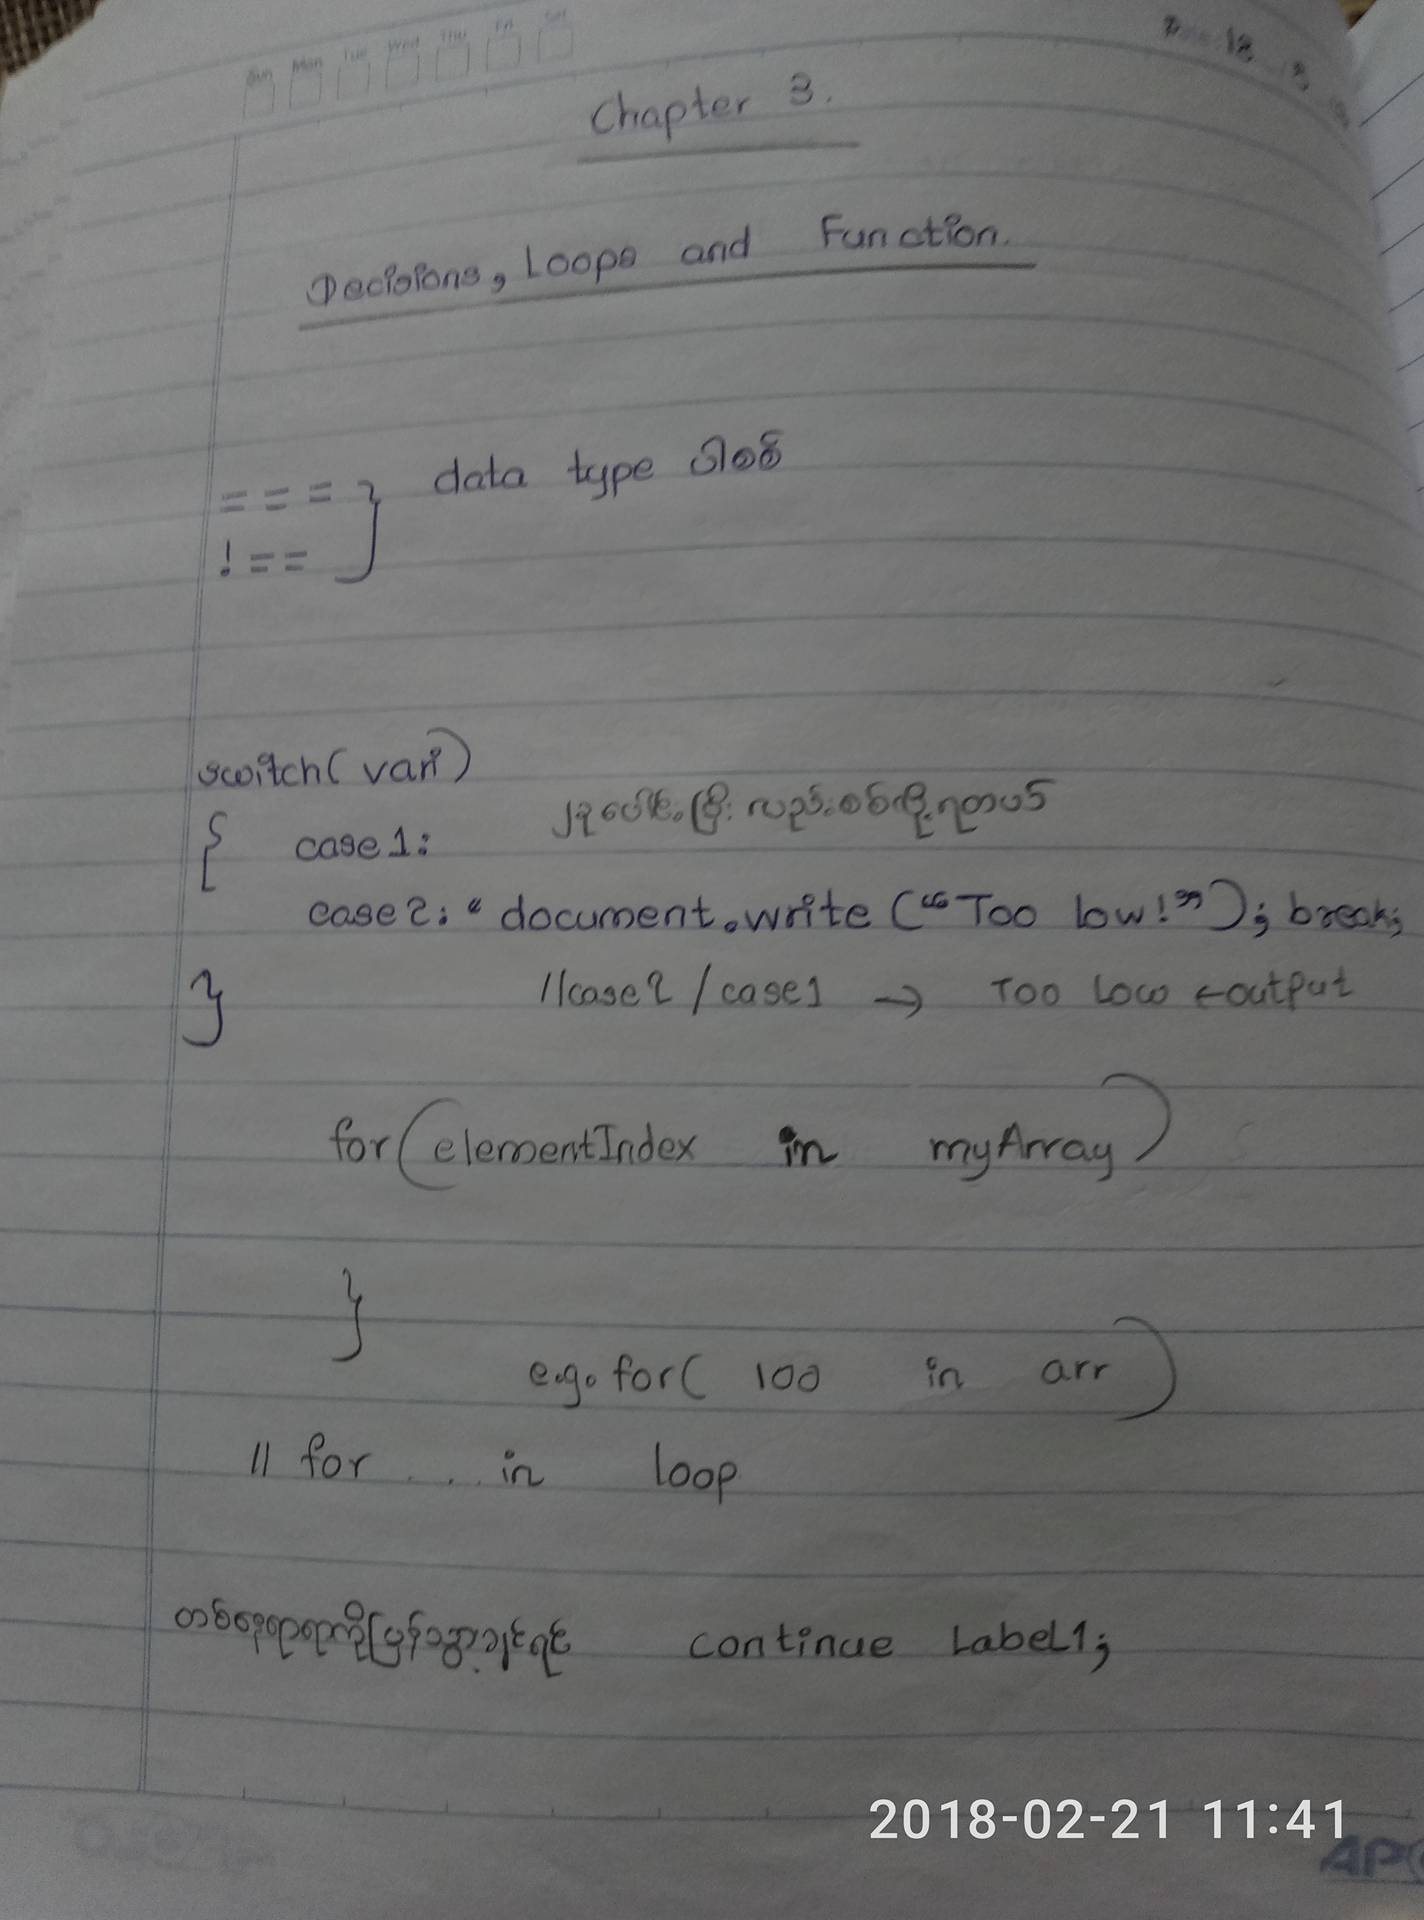 Sun Mon Tue Wed Thu Fri Sat
Chapter 3.
Decisions, Loops and Function.
=== } data type ပါစစ်
!==
switch(vari)
{ case1: ၂ခုပေါင်းပြီးလည်းစစ်လို့ရတယ်
case2: " document.write ("Too low!"); break;
} //case2 / case1 → Too Low ←output
for(elementIndex in myArray)
}
e.g. for( 100 in arr)
// for ... in loop
တစ်နေရာရာကိုပြန်သွားချင်ရင် continue Label1;
2018-02-21 11:41